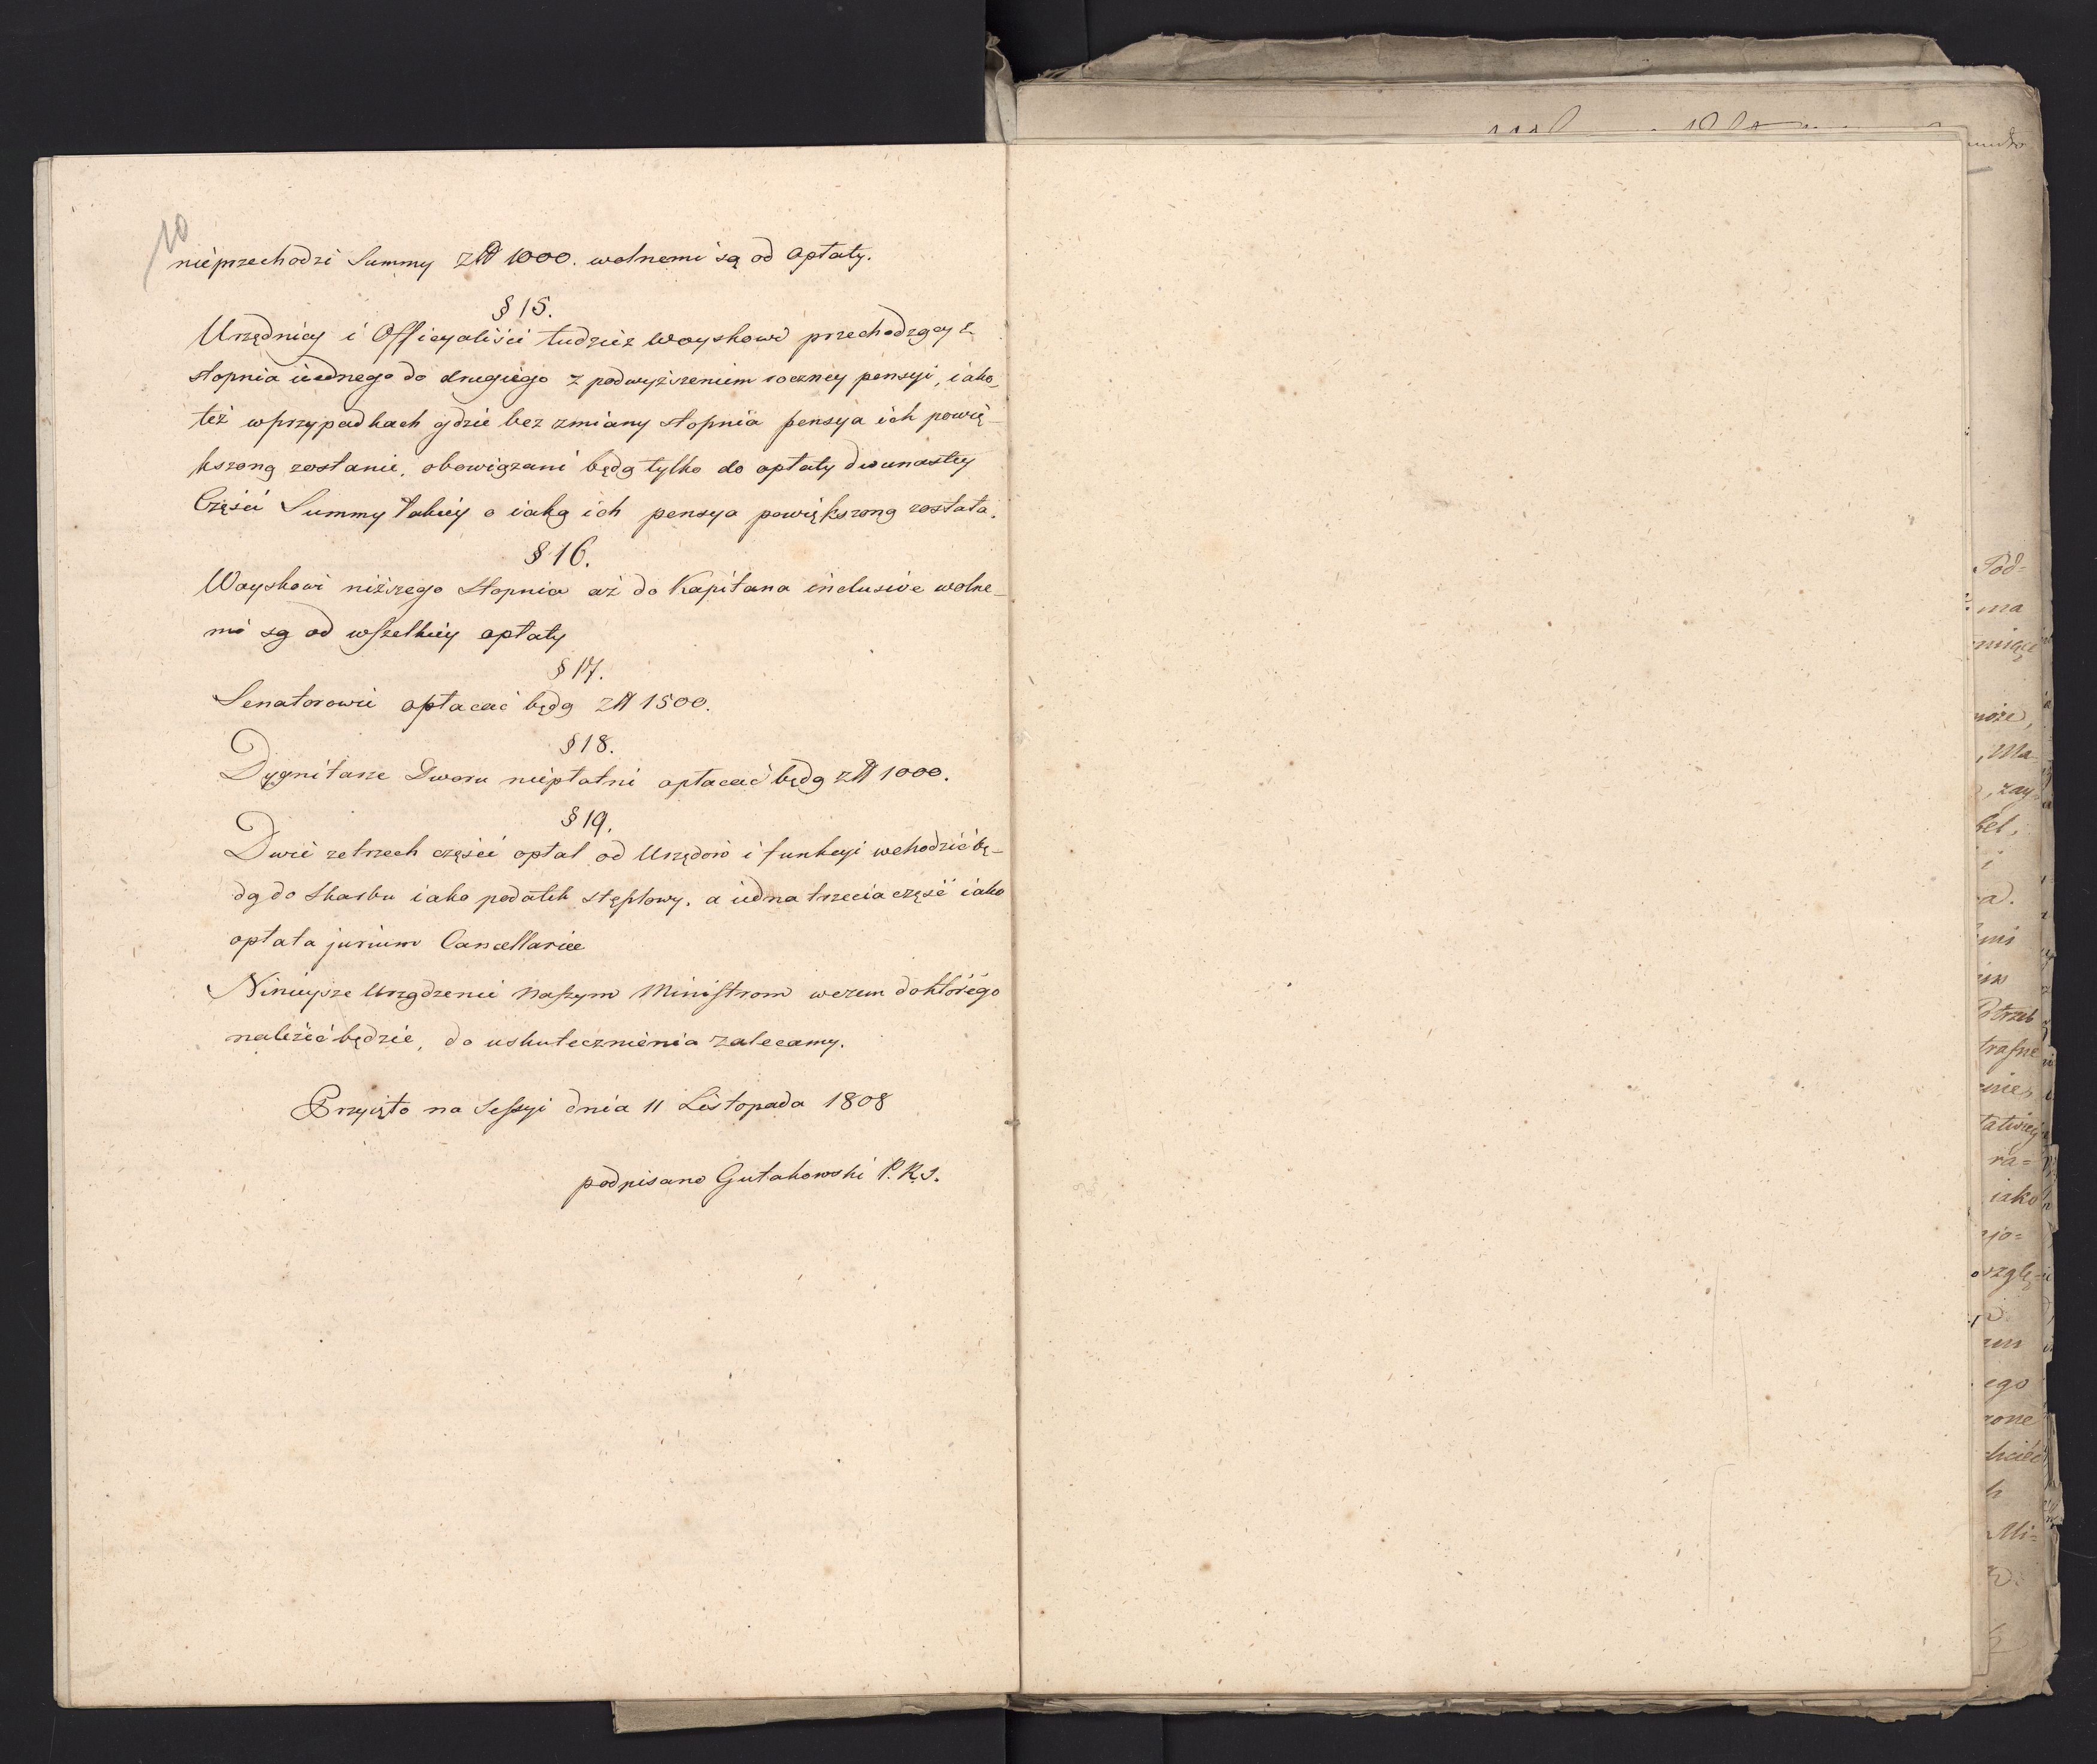 10
nieprzechodzi Summy złł 1000. wolnemi są od opłaty.
§ 15.
Urzędnicy i Officyaliści tudzież Woyskowi przechodzący z
stopnia iednego do drugiego z podwyższeniem roczney pensyi, iako
też w przypadkach gdzie bez zmiany stopnia pensya ich powię-
kszoną zostanie, obowiązani będą tylko do opłaty dwunastey
Części Summy takiey o iaką ich pensya powiększoną została.
§ 16.
Woyskowi niższego Stopnia aż do Kapitana inclusive wolne-
mi są od wszelkiey opłaty
§ 17.
Senatorowie opłacać będą złł 1500.
§ 18.
Dygnitarze Dworu niepłatni opłacać będą złł 1000.
§ 19.
Dwie zetrzech części opłat od Urzędów i funkcyi wchodzić bę-
dą do Skarbu iako podatek stęplowy, a iedna trzecia część iako
opłata jurium Cancellariæ
Ninieysze Urządzenie Naszym Ministrom wczem doktórego
należeć będzie, do uskutecznienia zalecamy.
Przyięto na Sessyi dnia 11 Listopada 1808
podpisano Gutakowski P. R. S.